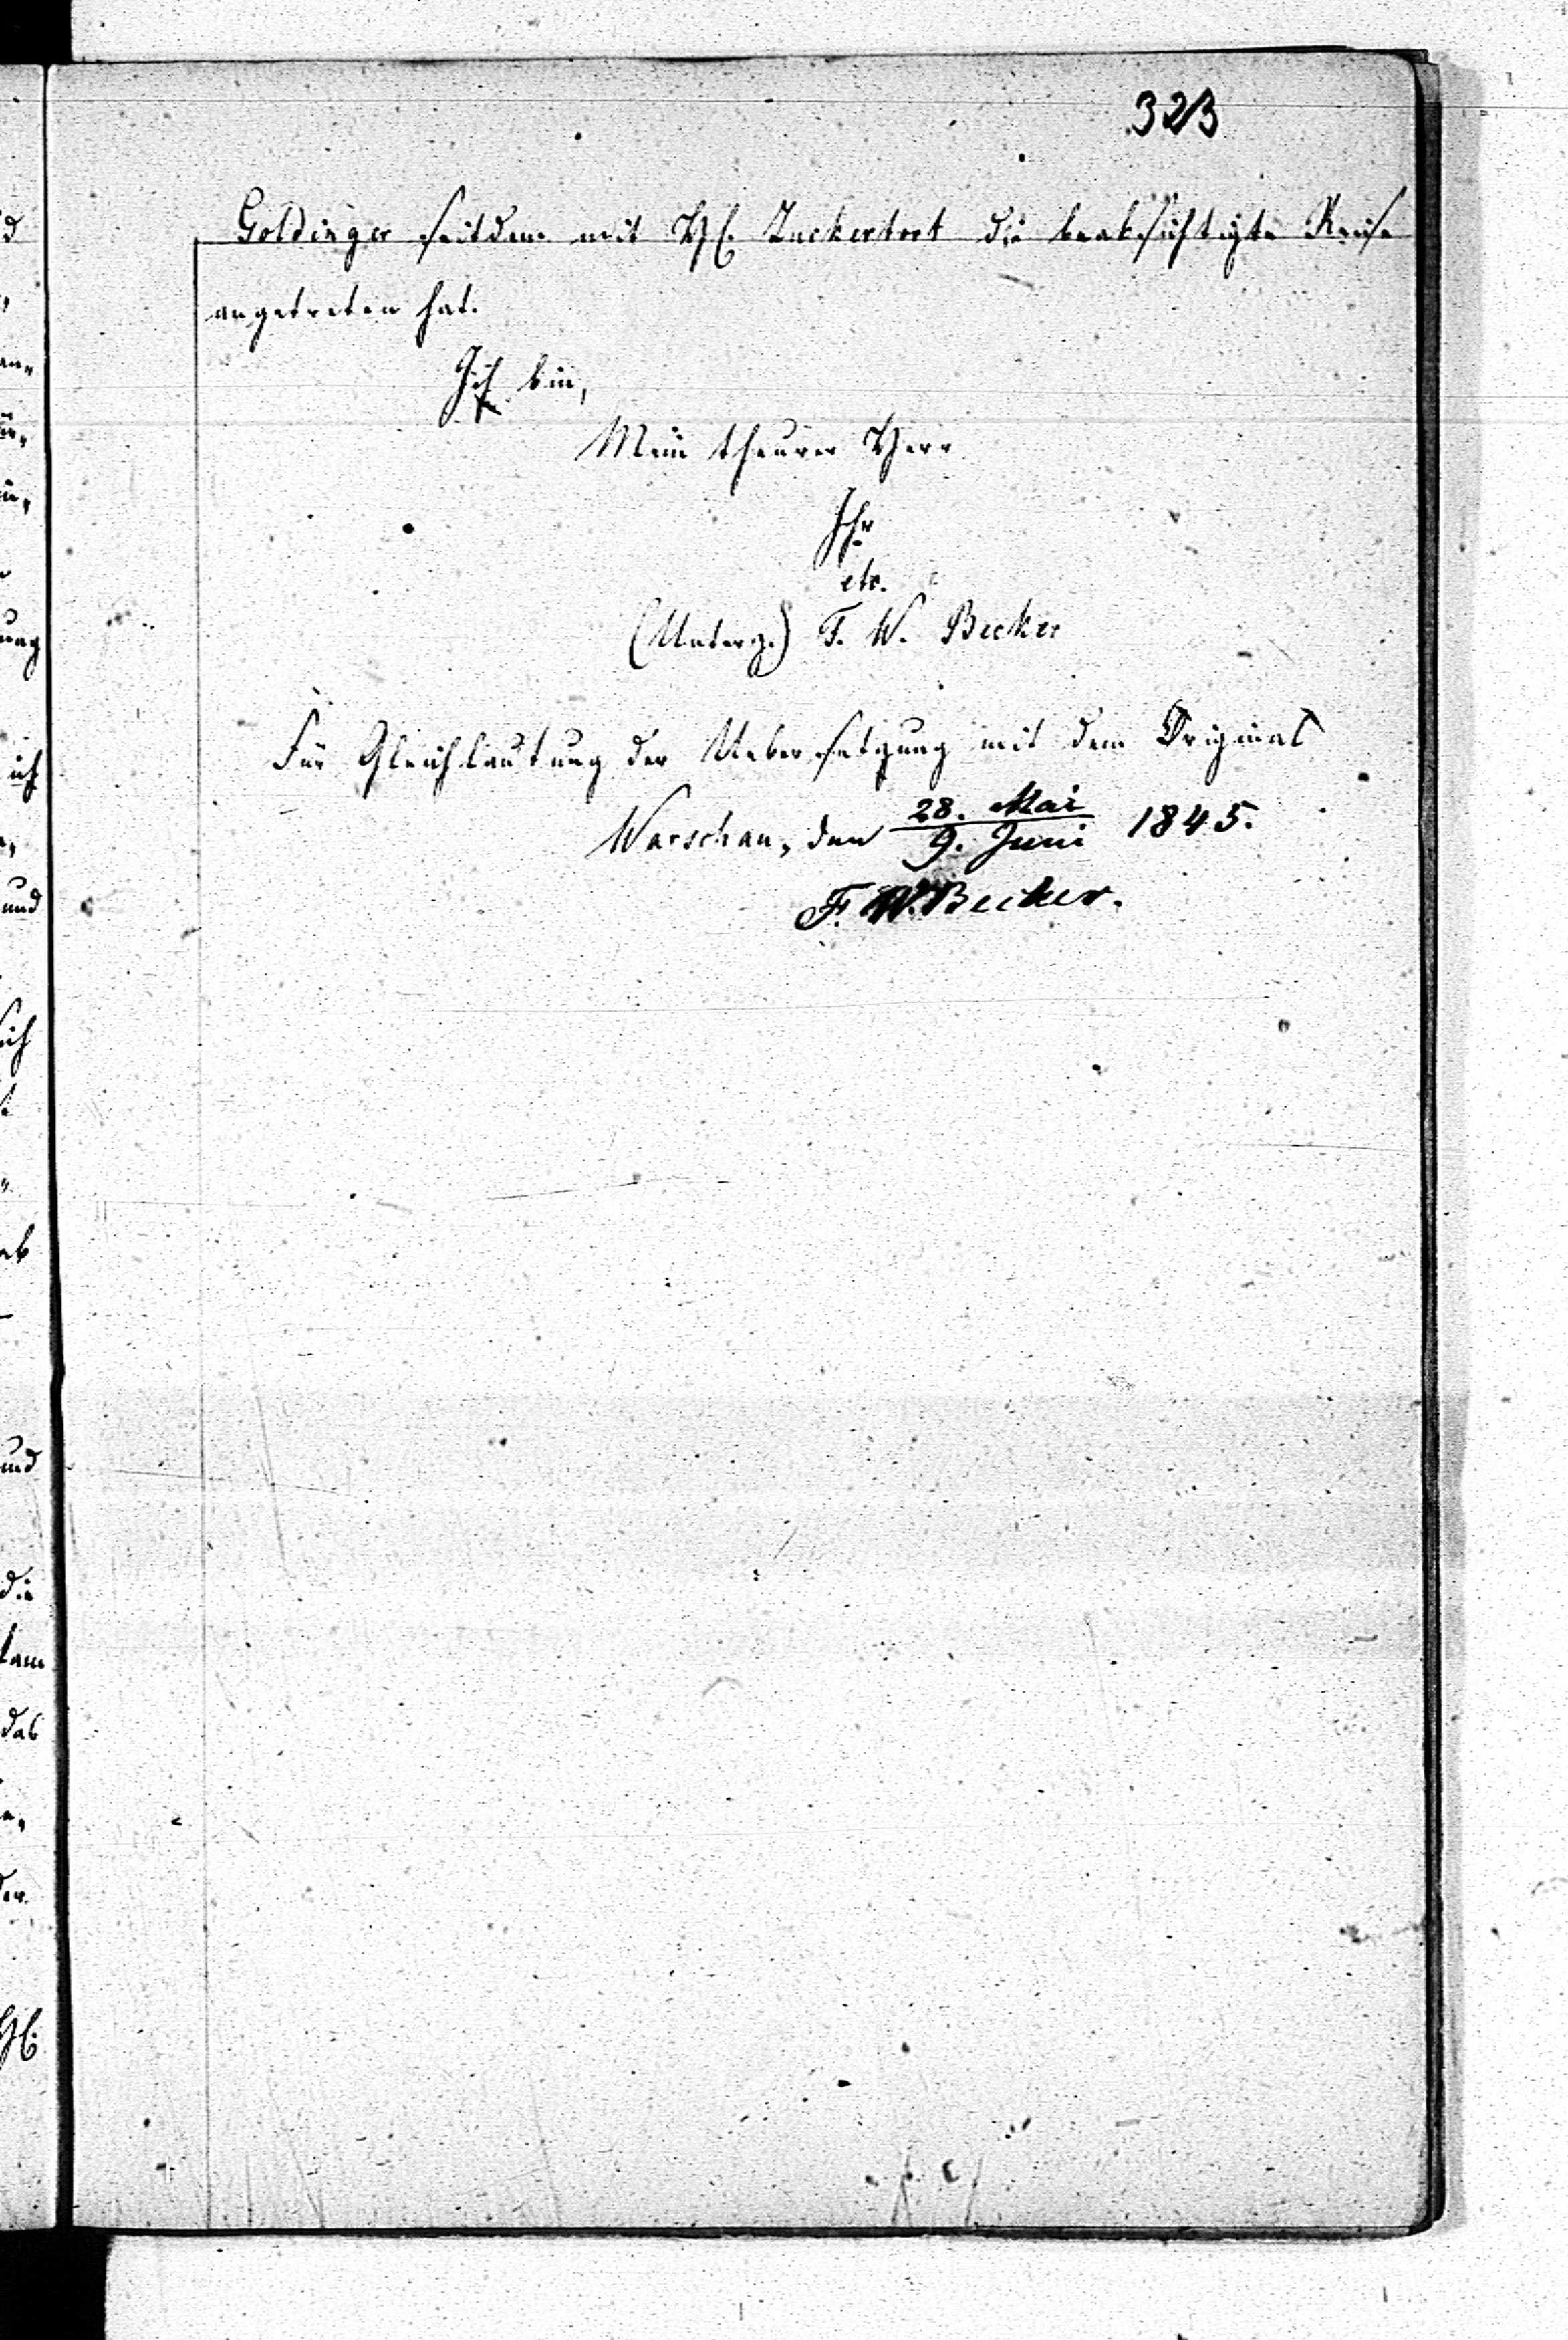 323
Goldinger seitdem mit H. Zuckertort die beabsichtigte Reise
angetreten hat.
Ich bin,
Mein theurer Herr
Ihr
etc.
(Unterz.) F. W. Becker
Für Gleichlautung der Uebersetzung mit dem Original
Warschau, den 28. Mai / 9. Juni 1845.
F. W. Becker.